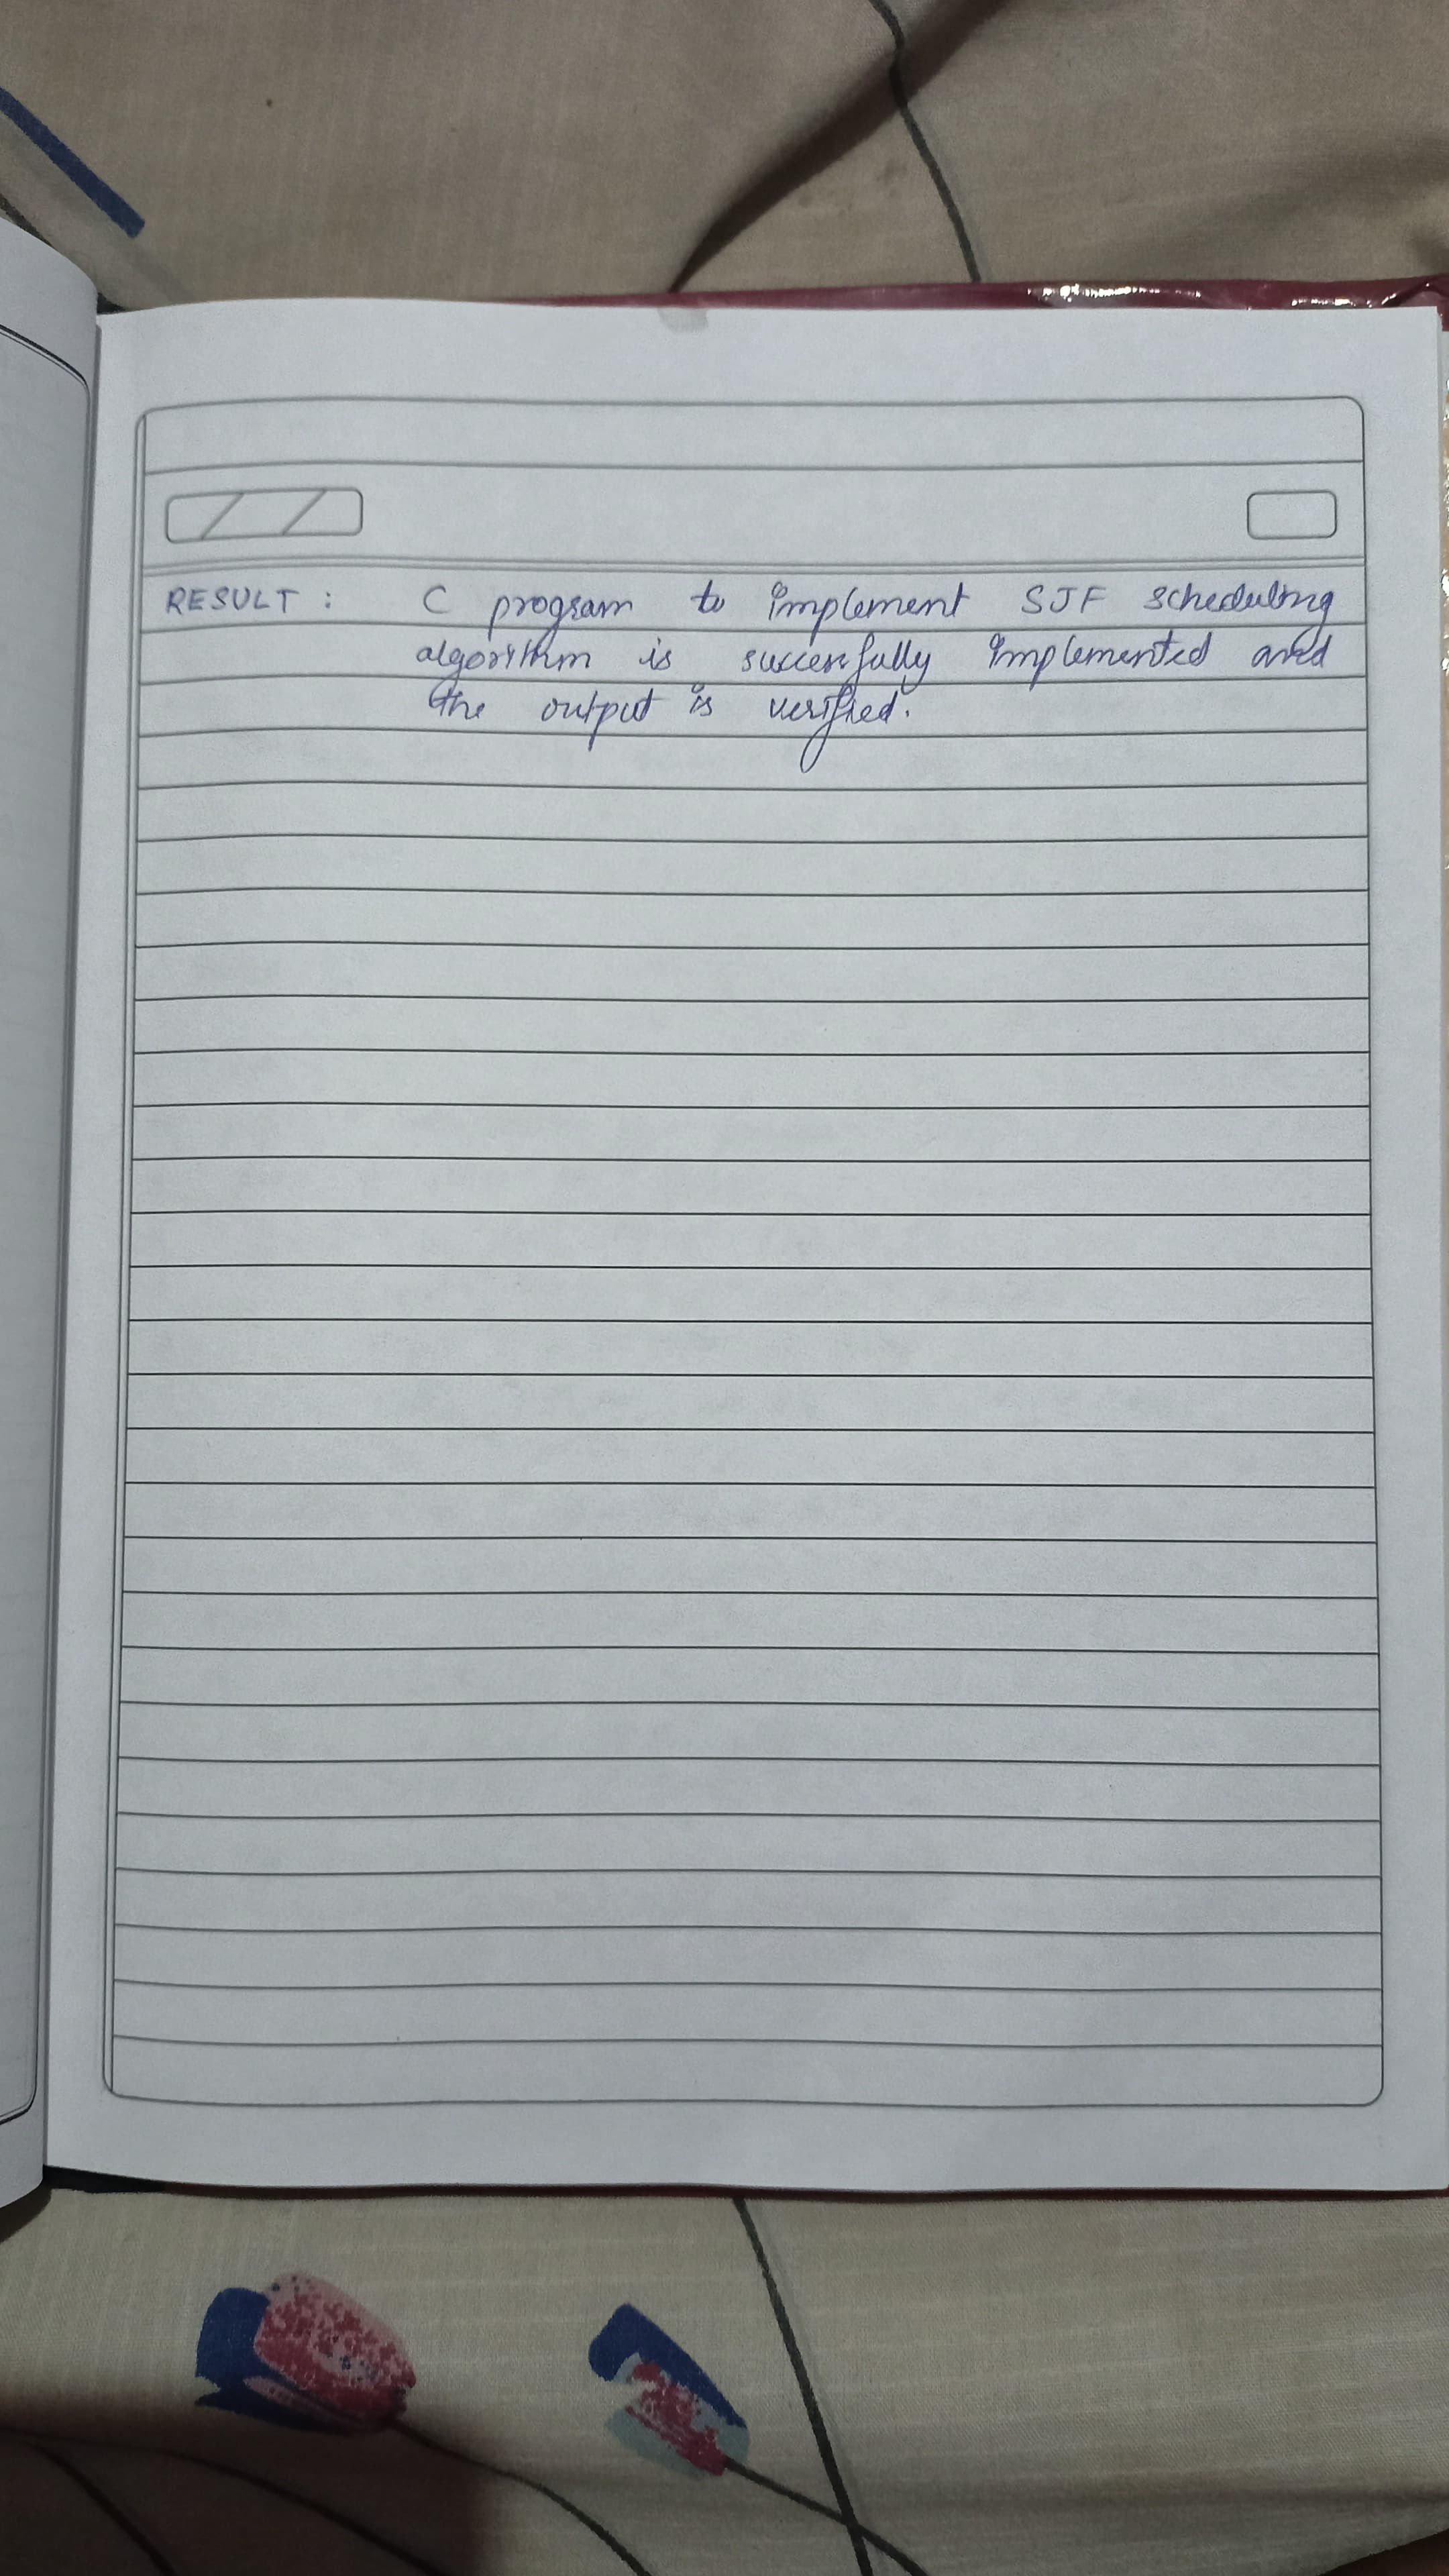 RESULT : C program to implement SJF scheduling
algorithm is successfully implemented and
the output is verified.